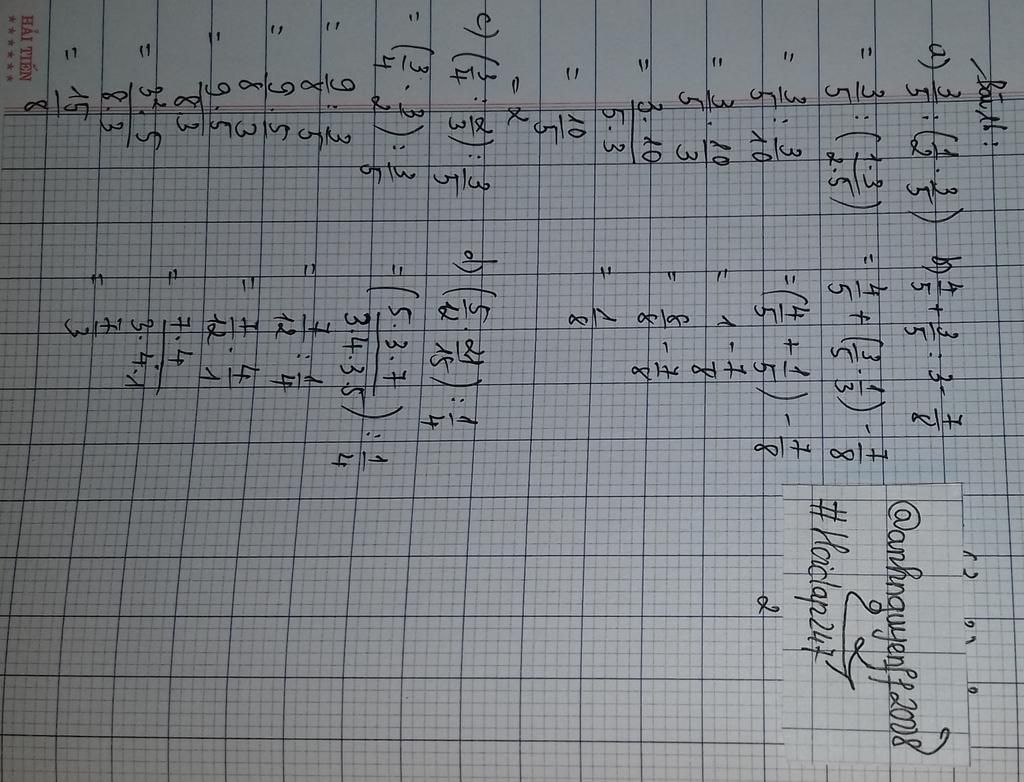 Bài 11:
a) 3/5 : (1/2 . 3/5)
= 3/5 : (1.3/2.5)
= 3/5 : 3/10
= 3/5 . 10/3
= 3.10/5.3
= 10/5
= 2
b) 4/5 + 3/5 : 3 - 7/8
= 4/5 + (3/5 . 1/3) - 7/8
= (4/5 + 1/5) - 7/8
= 1 - 7/8
= 8/8 - 7/8
= 1/8
c) (3/4 : 2/3) : 3/5
= (3/4 . 3/2) : 3/5
= 9/8 : 3/5
= 9/8 . 5/3
= 9.5/8.3
= 3.5/8.3
= 15/8
d) (5/12 . 21/15) : 1/4
= (5.3.7/3.4.3.5) : 1/4
= 7/12 : 1/4
= 7/12 . 4/1
= 7.4/3.4.1
= 7/3
@anhnguyenpf2008
#Hoidap247
2
HẢI TIẾN